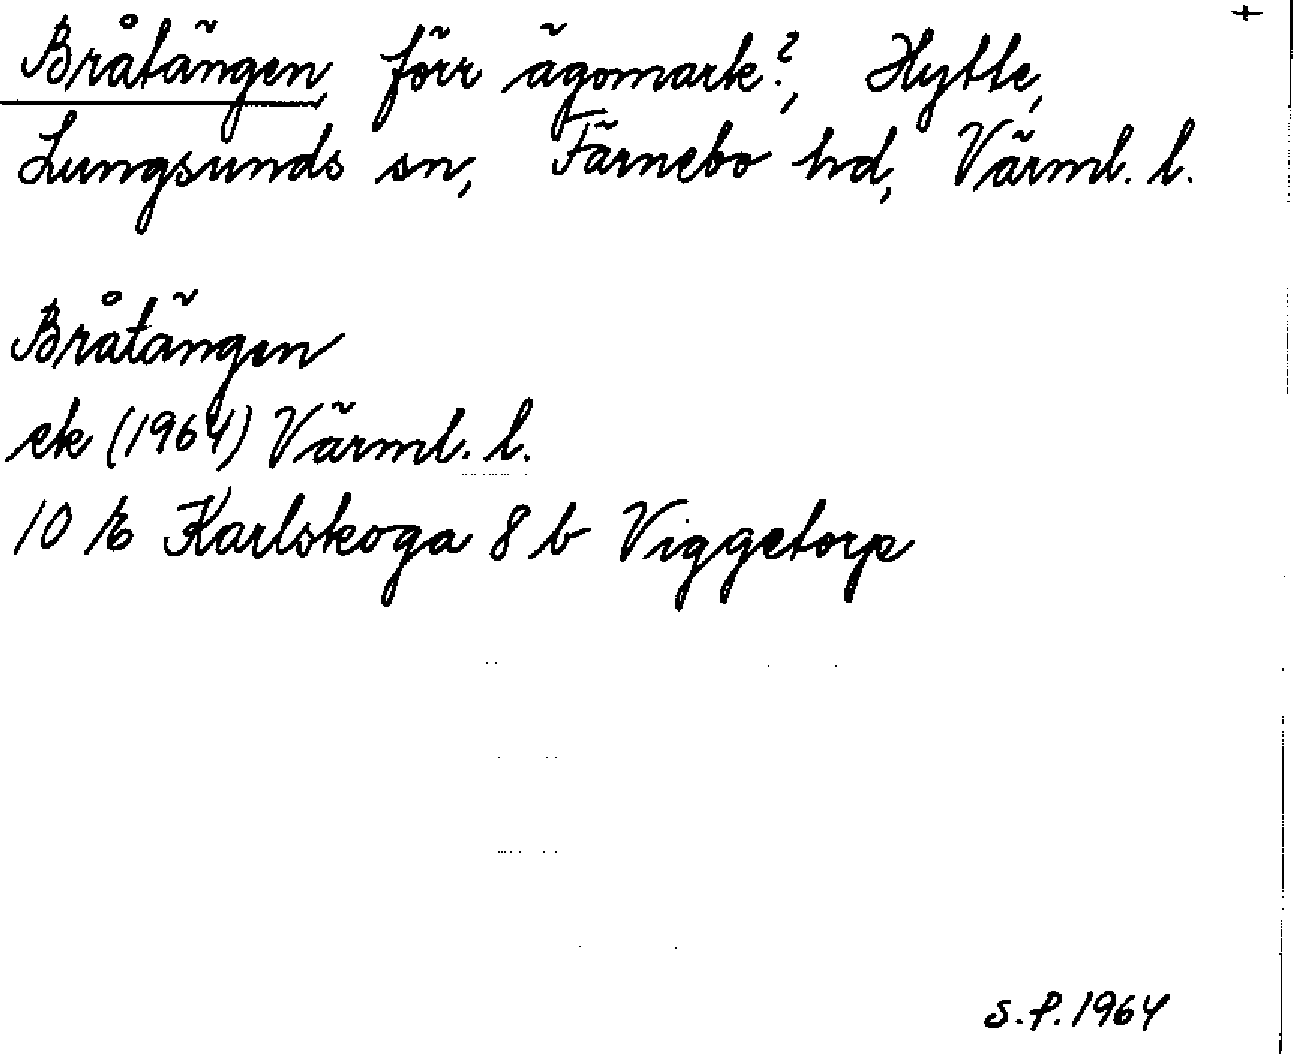 +
Bråtängen, förr ägomark?, Hytte,
Lungsunds sn, Färnebo hd, Värml. l.
Bråtängen
ek (1964) Värml. l.
10 E Karlskoga 8 b Viggetorp
S.P. 1964